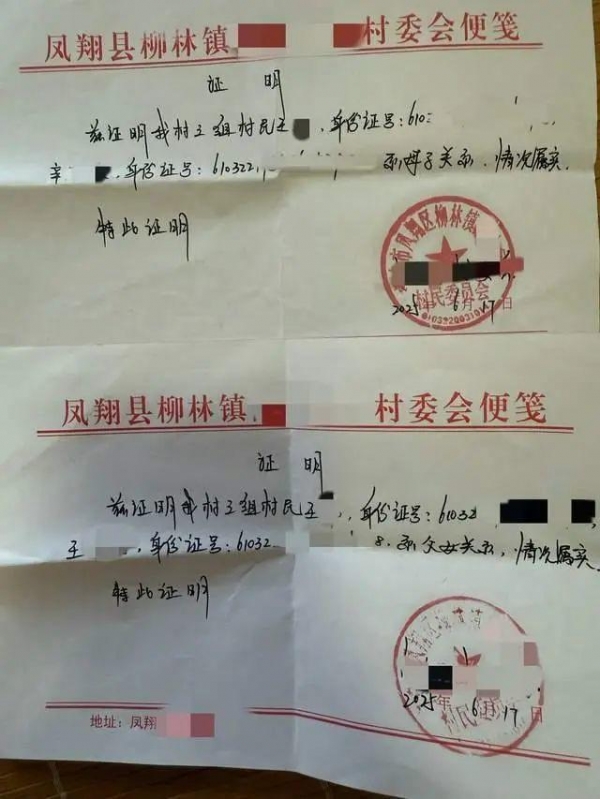 凤翔县柳林镇 村委会便笺
证 明
兹证明我村三组村民王 ，身份证号：610
辛 ，身份证号：610322 系母子关系，情况属实
特此证明
市凤翔区柳林镇
村民委员会
2025年6月17日
凤翔县柳林镇 村委会便笺
证 明
兹证明我村三组村民王 ，身份证号：61032
王 ，身份证号：61032 系父女关系，情况属实
特此证明
村民
2025年6月17日
地址：凤翔